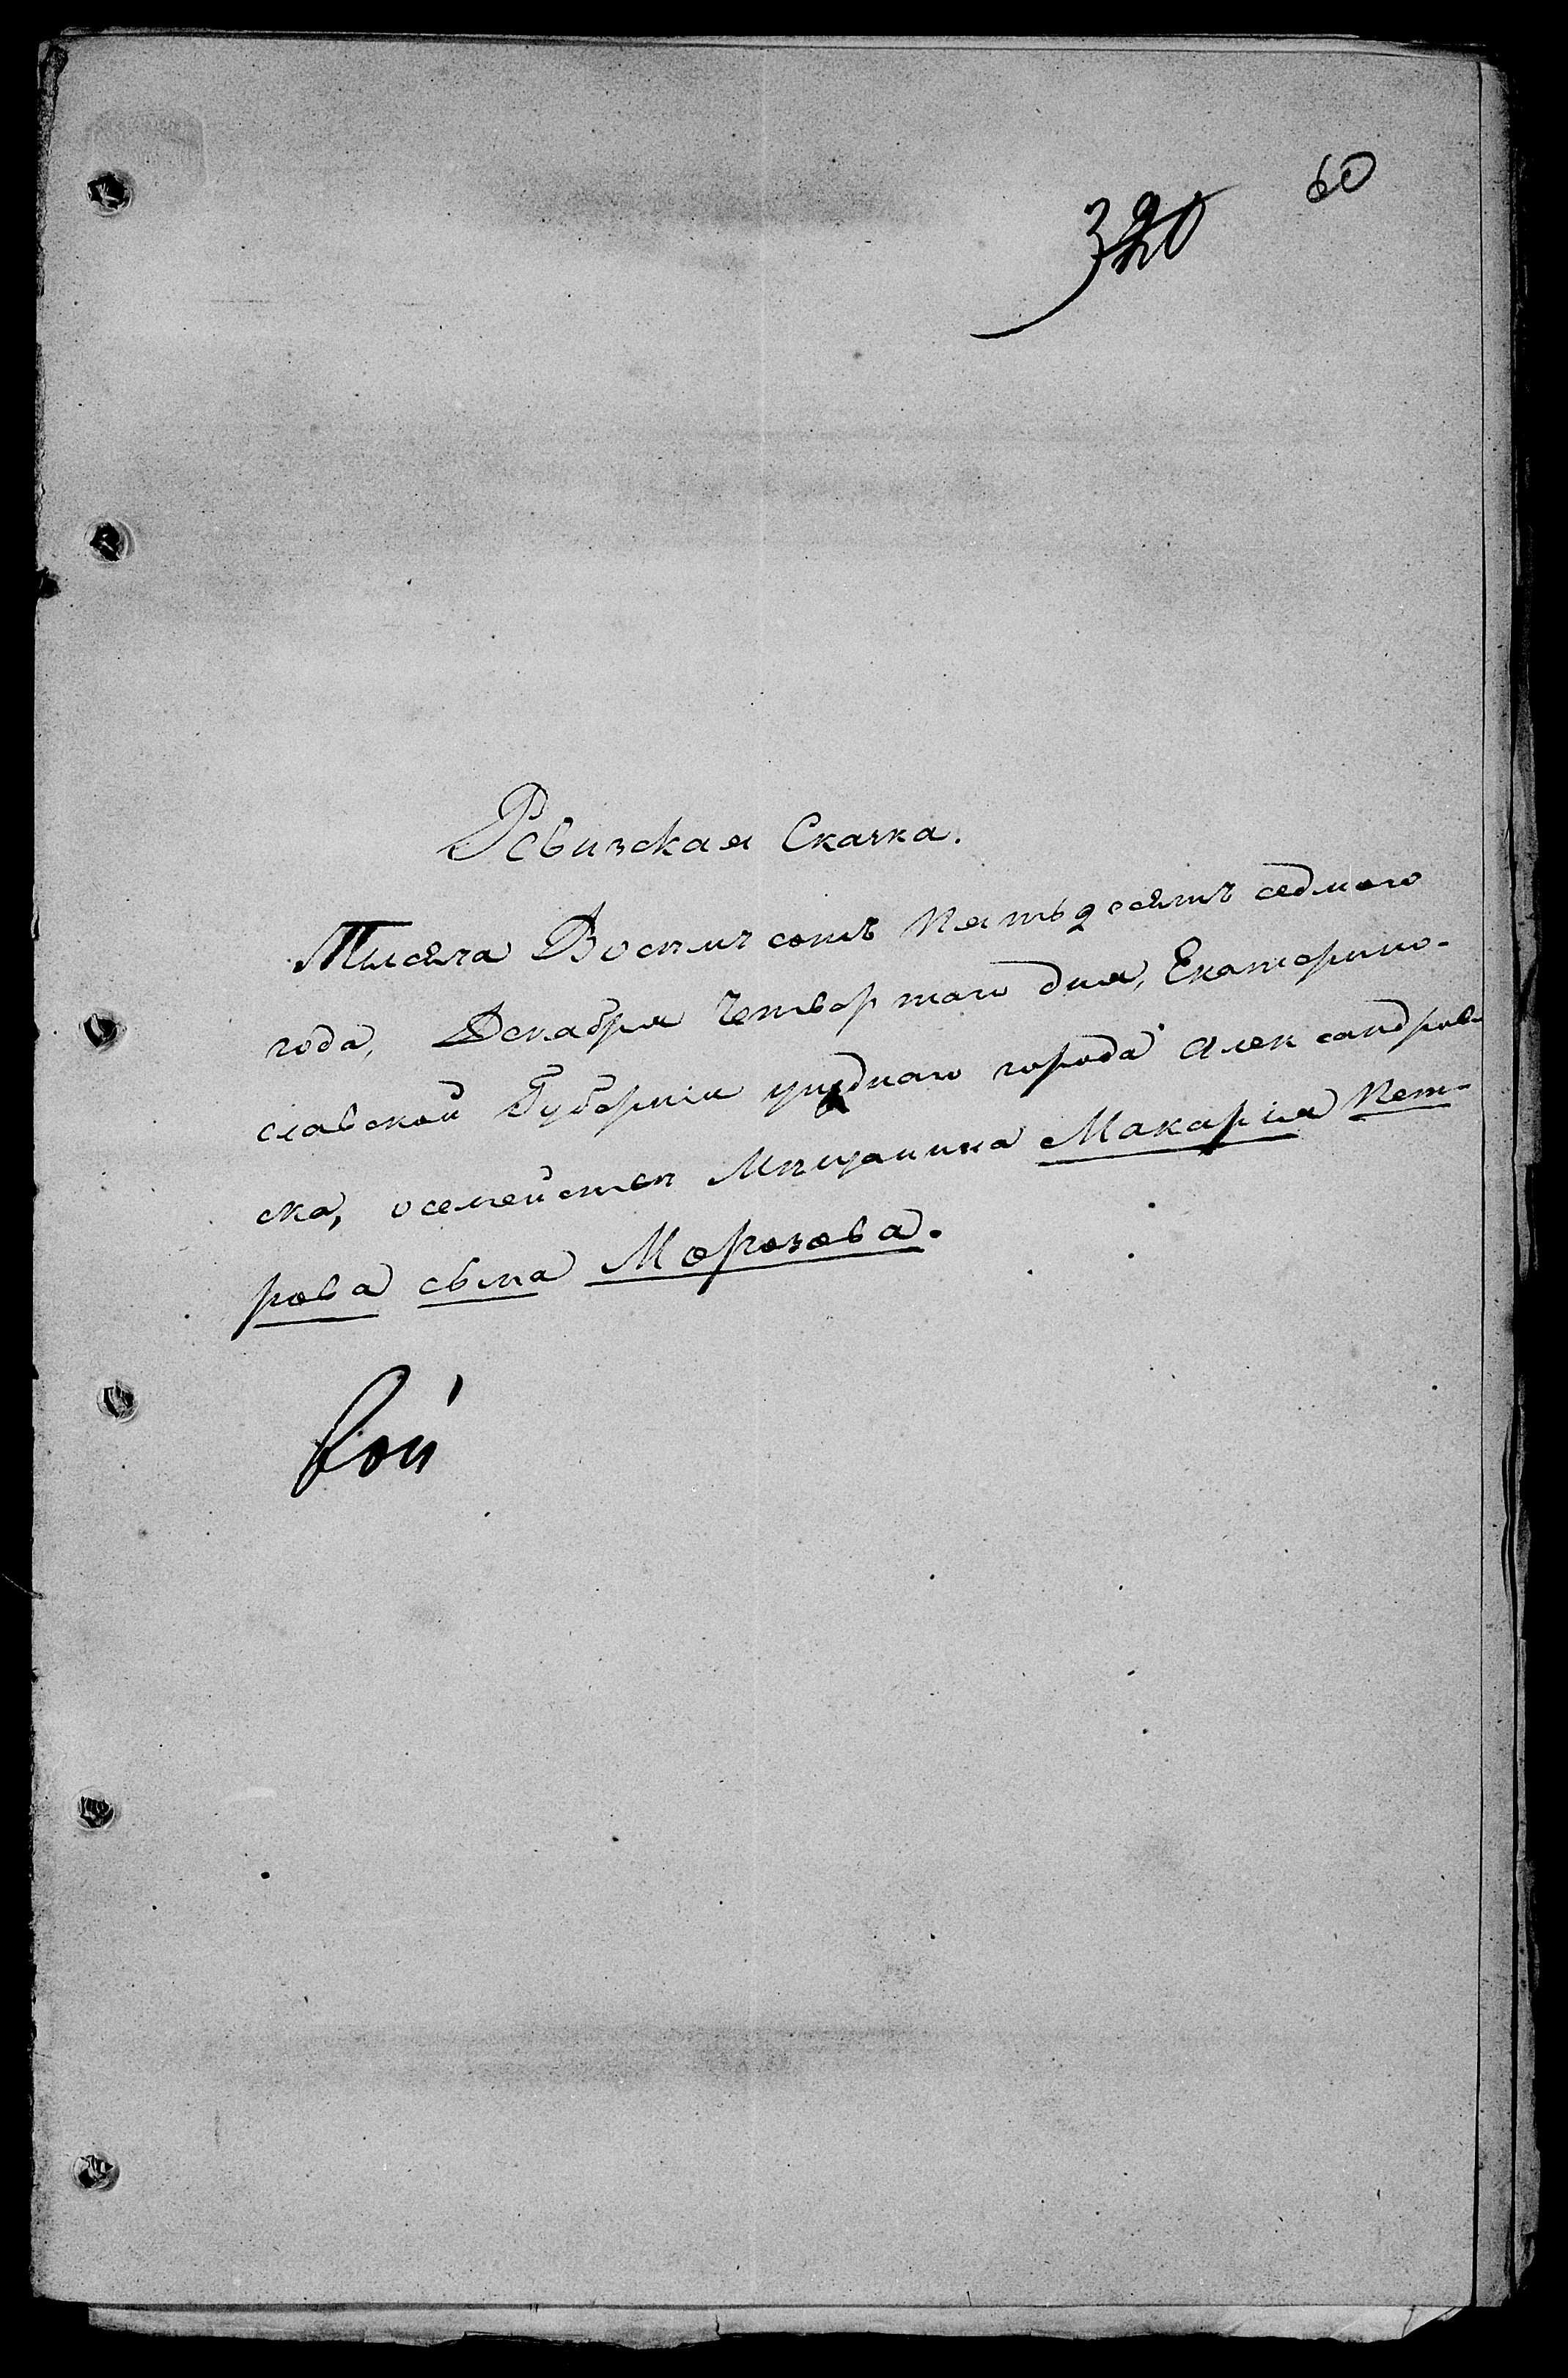 60
320
Ревизская Скаска.
Тысяча Восемъ сотъ пятьдесятъ седмого
года, Декабря Четвертаго дня, Екатерино-
славской Губерніи уѣзднаго города Александров-
ска, о семействѣ Мѣщанина Макарія Пет-
рова сына Морозова.